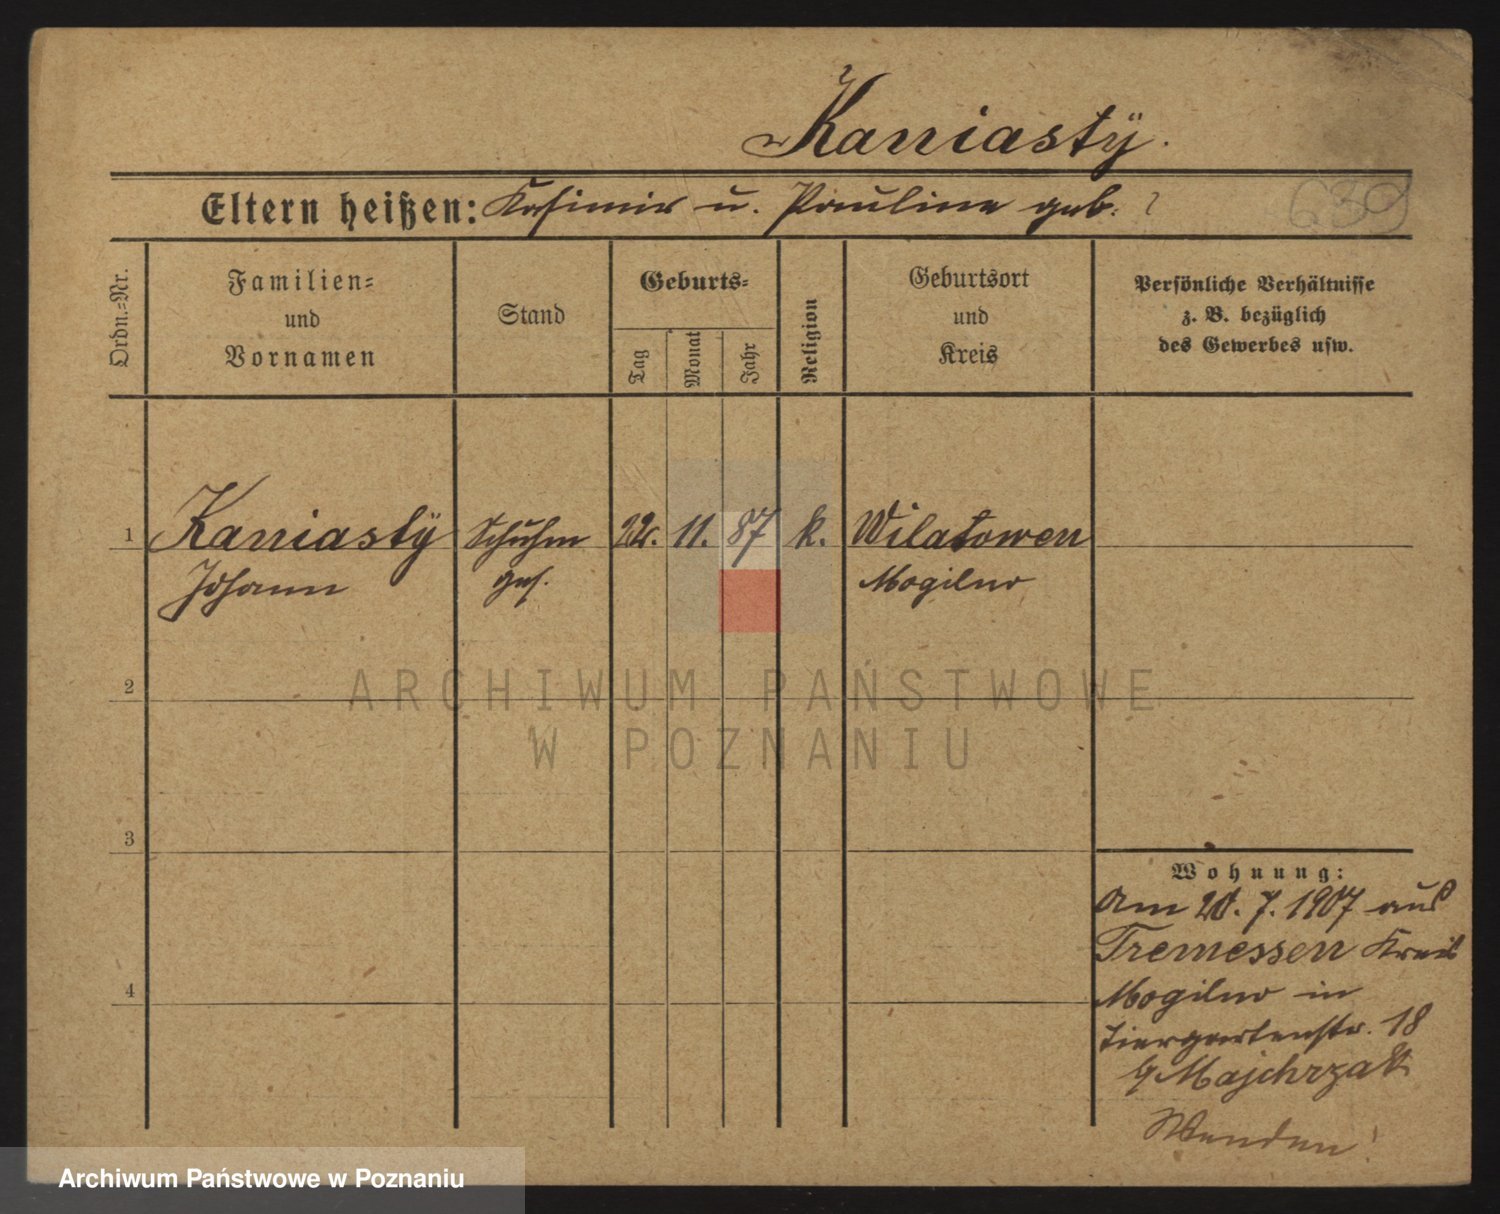 Kaniastÿ.
Eltern heißen: Kasimir u. Pauline geb. ?
639
Ordn.=Nr.
Familien=
und
Vornamen
Stand
Geburts=
Tag
Monat
Jahr
Religion
Geburtsort
und
Kreis
Persönliche Verhältnisse
z. B. bezüglich
des Gewerbes usw.
1 Kaniastÿ Schuhm 22. 11. 87 k. Wilatowen
Johann ges. Mogilno
2
3
4
Wohnung:
Am 20. 7. 1907 aus
Tremessen Kreis
Mogilno in
Tiergartenstr. 18
b/ Majchrzak
Wenden!
ARCHIWUM PAŃSTWOWE
W POZNANIU
Archiwum Państwowe w Poznaniu